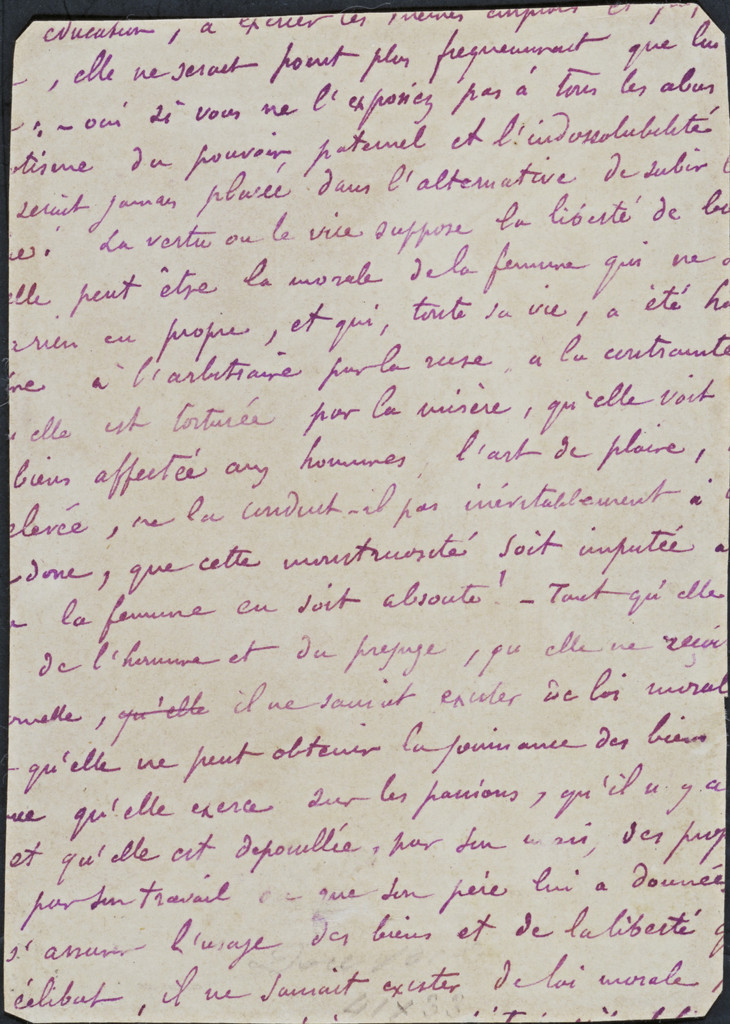 education, a exercer les mêmes emplois et
, elle ne serait point plus frequemment que lui
; - oui si vous ne l'exposiez pas à tous les abus
otisme du pouvoir paternel et l'indossolubilité
serait jamais placée dans l'alternative de subir
ie! La vertu ou le vice suppose la liberté de
elle peut être la morale de la femme qui ne
rien en propre, et qui, toute sa vie, a été ha
ire à l'arbitraire par la ruse, a la contrainte
elle est torturée par la misère, qu'elle voit
biens affectée aux hommes, l'art de plaire,
elevée, ne la conduit-il pas inévitablement à
donc, que cette monstruosité soit imputée a
la femme en soit absoute! - Tant qu'elle
de l'homme et du prejuge, qu elle ne reçoi
rnelle, qu'elle il ne saurait exister de loi moral
- qu'elle ne peut obtenir la jouissance des biens
ue qu'elle exerce sur les passions, qu'il n'y a
et qu'elle est depouillée, par son mari, des prop
par son travail ou que son père lui a donnée
s'assurer l'usage des biens et de la liberté
célibat, il ne saurait exister de loi morale,